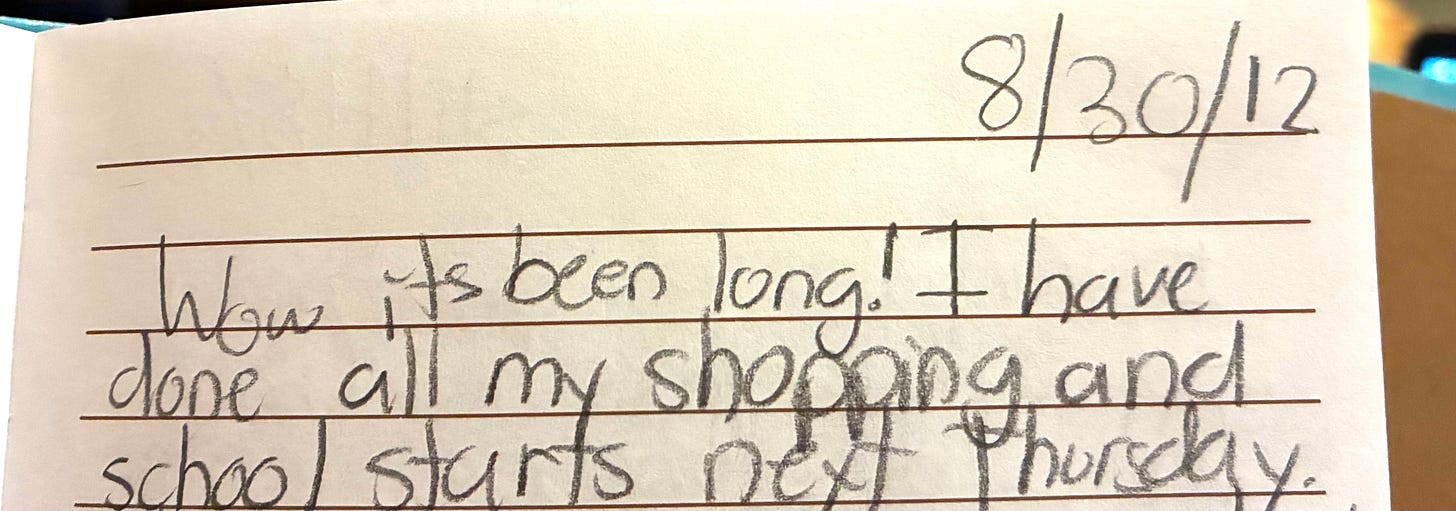 8/30/12
Wow its been long! I have
done all my shopping and
school starts next Thursday.